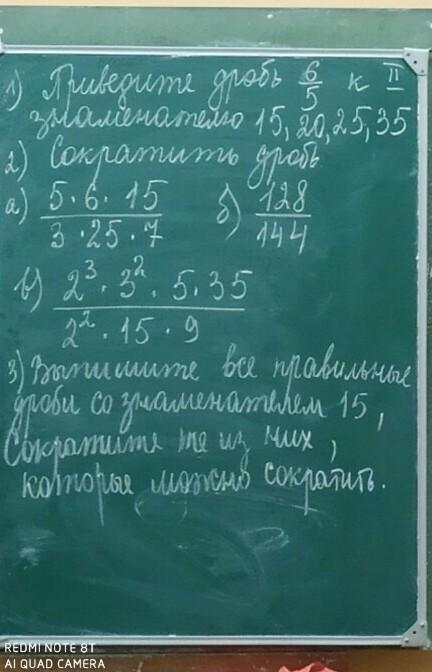 1) Приведите дробь 6/5 к II
знаменателю 15, 20, 25, 35
2) Сократить дробь
а) (5 · 6 · 15)/(3 · 25 · 7) б) 128/144
в) (2³ · 3² · 5 · 35)/(2² · 15 · 9)
3) Выпишите все правильные
дроби со знаменателем 15,
Сократите те из них,
которые можно сократить.
REDMI NOTE 8T
AI QUAD CAMERA